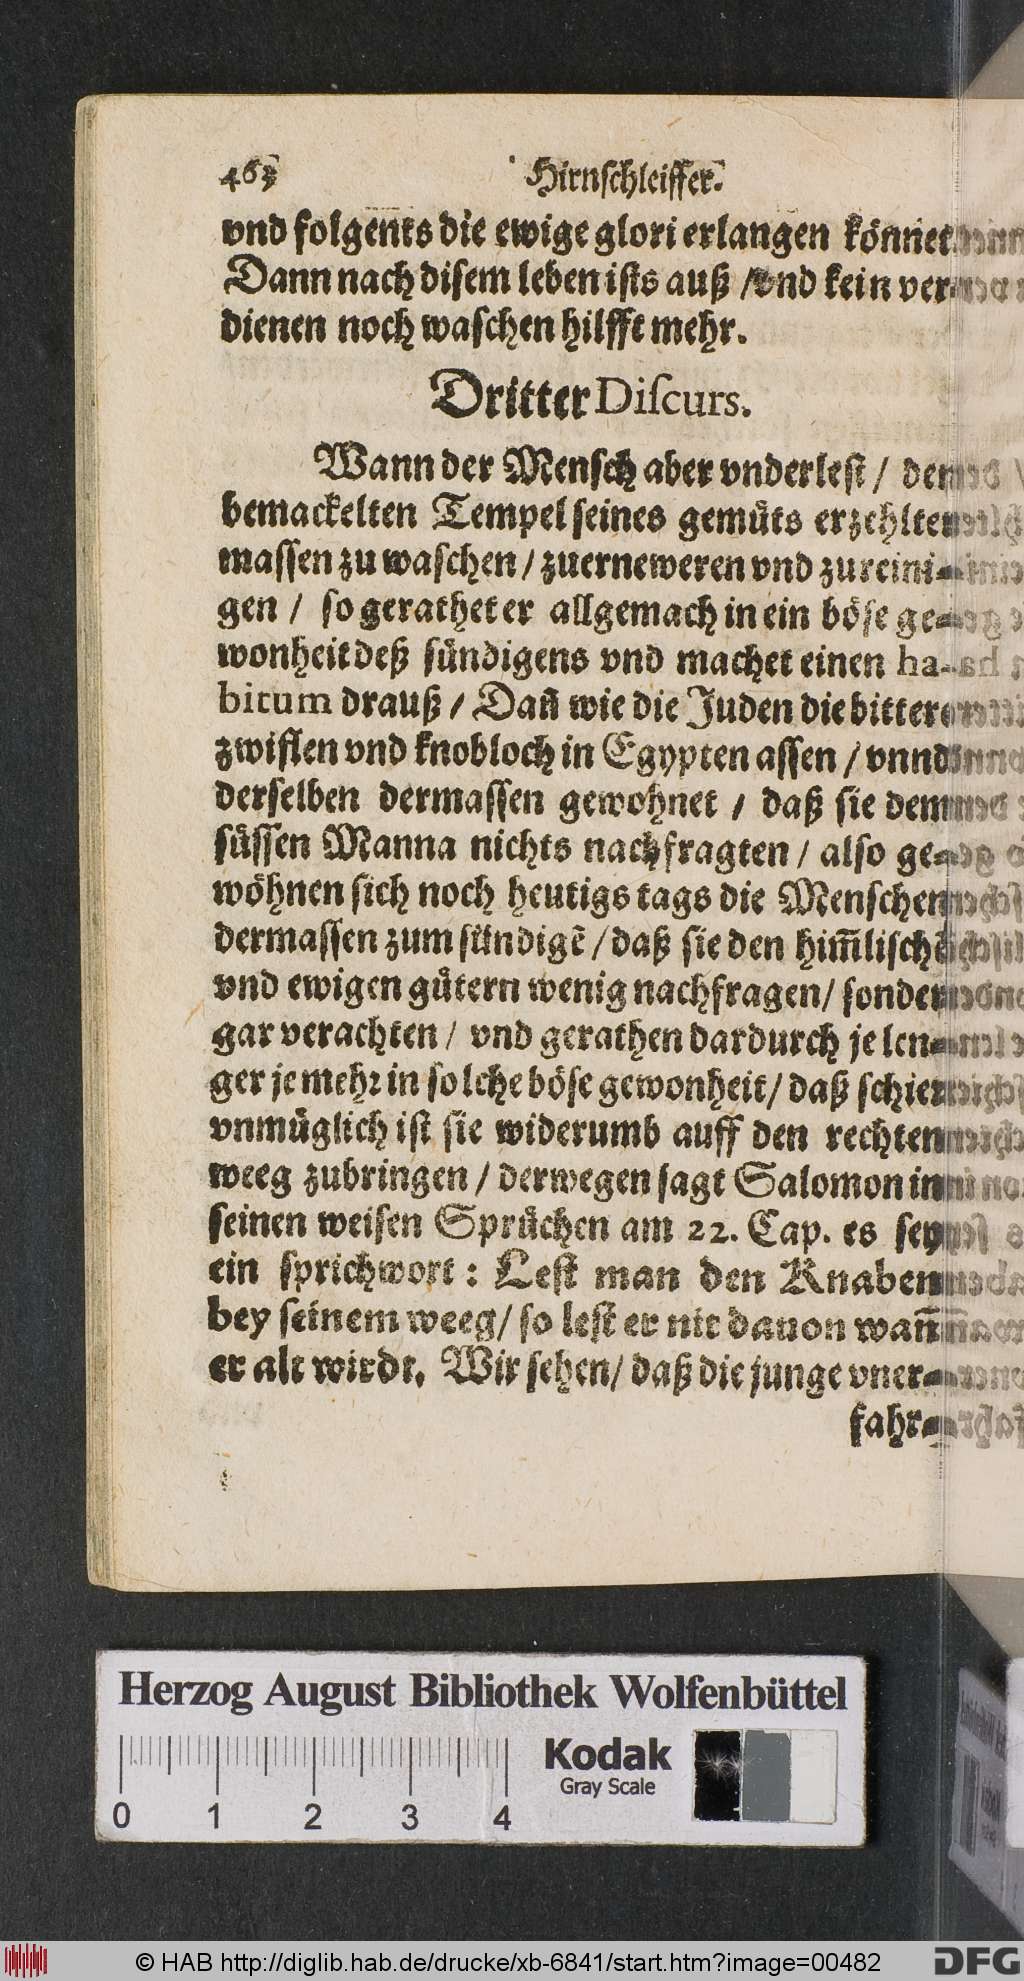 462 Hirnschleiffer.
vnd folgents die ewige glori erlangen könnet.
Dann nach disem leben ists auß / vnd kein ver-
dienen noch waschen hilfft mehr.
Dritter Discurs.
Wann der Mensch aber vnderlest / den
bemackelten Tempel seines gemüts erzehlter
massen zu waschen / zuerneweren vnd zureini-
gen / so gerathet er allgemach in ein böse ge-
wonheit deß sündigens vnd machet einen ha-
bitum drauß / Dañ wie die Juden die bittere
zwiflen vnd knobloch in Egypten assen / vnnd
derselben dermassen gewohnet / daß sie dem
süssen Manna nichts nachfragten / also ge-
wöhnen sich noch heutigs tags die Menschen
dermassen zum sündigē / daß sie den him̃lischē
vnd ewigen gütern wenig nachfragen / sonder
gar verachten / vnd gerathen dardurch je len-
ger je mehr in solche böse gewonheit / daß schier
vnmüglich ist sie widerumb auff den rechten
weeg zubringen / derwegen sagt Salomon in
seinen weisen Sprüchen am 22. Cap. es sey
ein sprichwort : Lest man den Knaben
bey seinem weeg / so lest er nit dauon wañ
er alt wirdt. Wir sehen / daß die junge vner-
fahr-
Herzog August Bibliothek Wolfenbüttel
0 1 2 3 4
Kodak
Gray Scale
© HAB http://diglib.hab.de/drucke/xb-6841/start.htm?image=00482
DFG